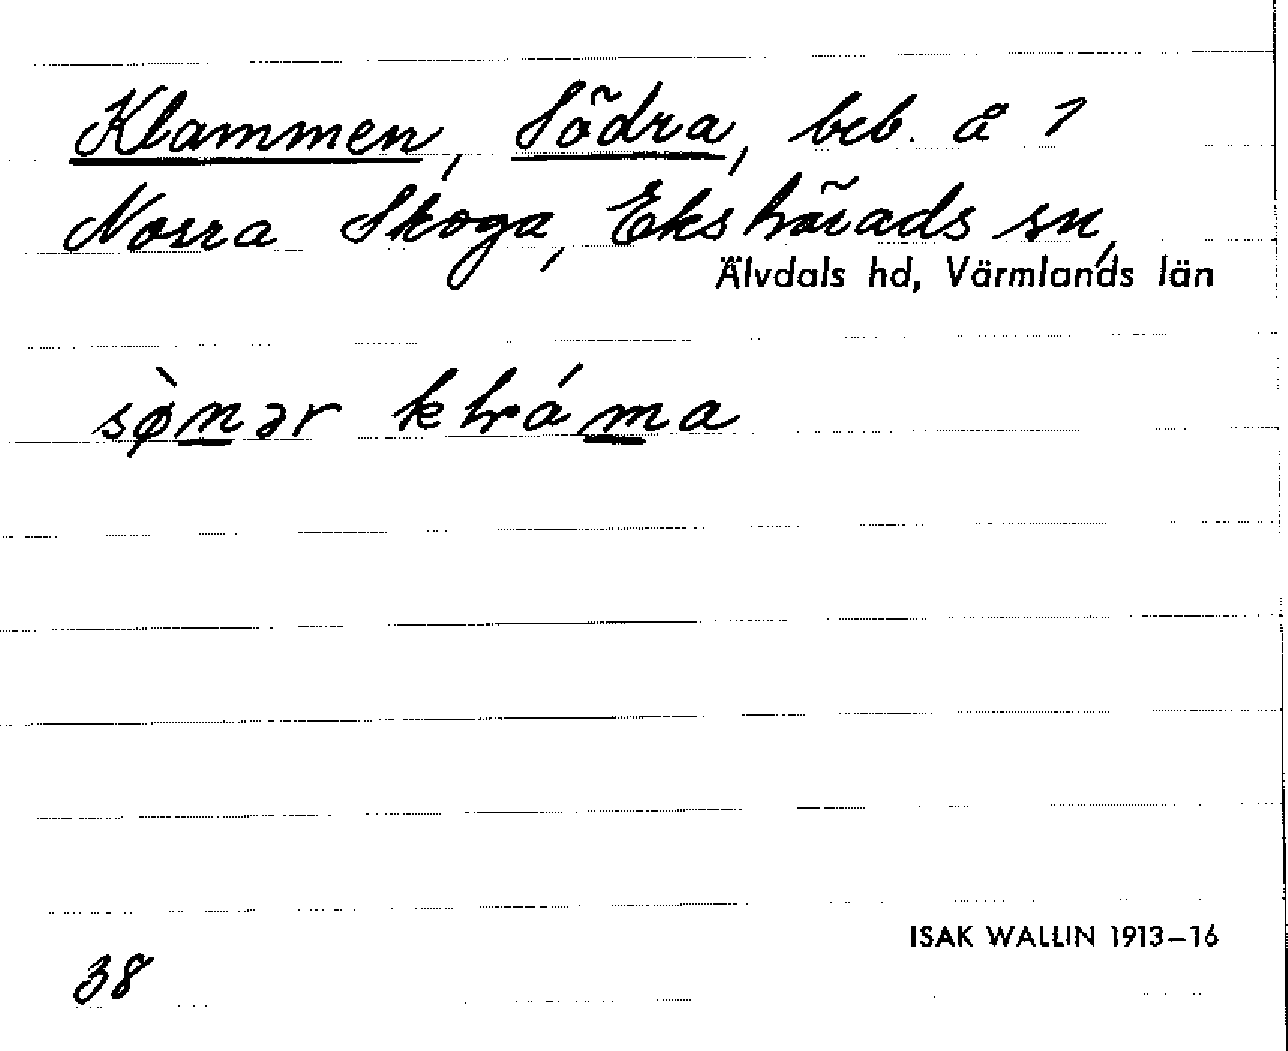 Klammen, Södra, beb. å 1
Norra Skoga, Ekshärads sn,
Älvdals hd, Värmlands län
sø̀nər kɬáma
ISAK WALLIN 1913–16
38